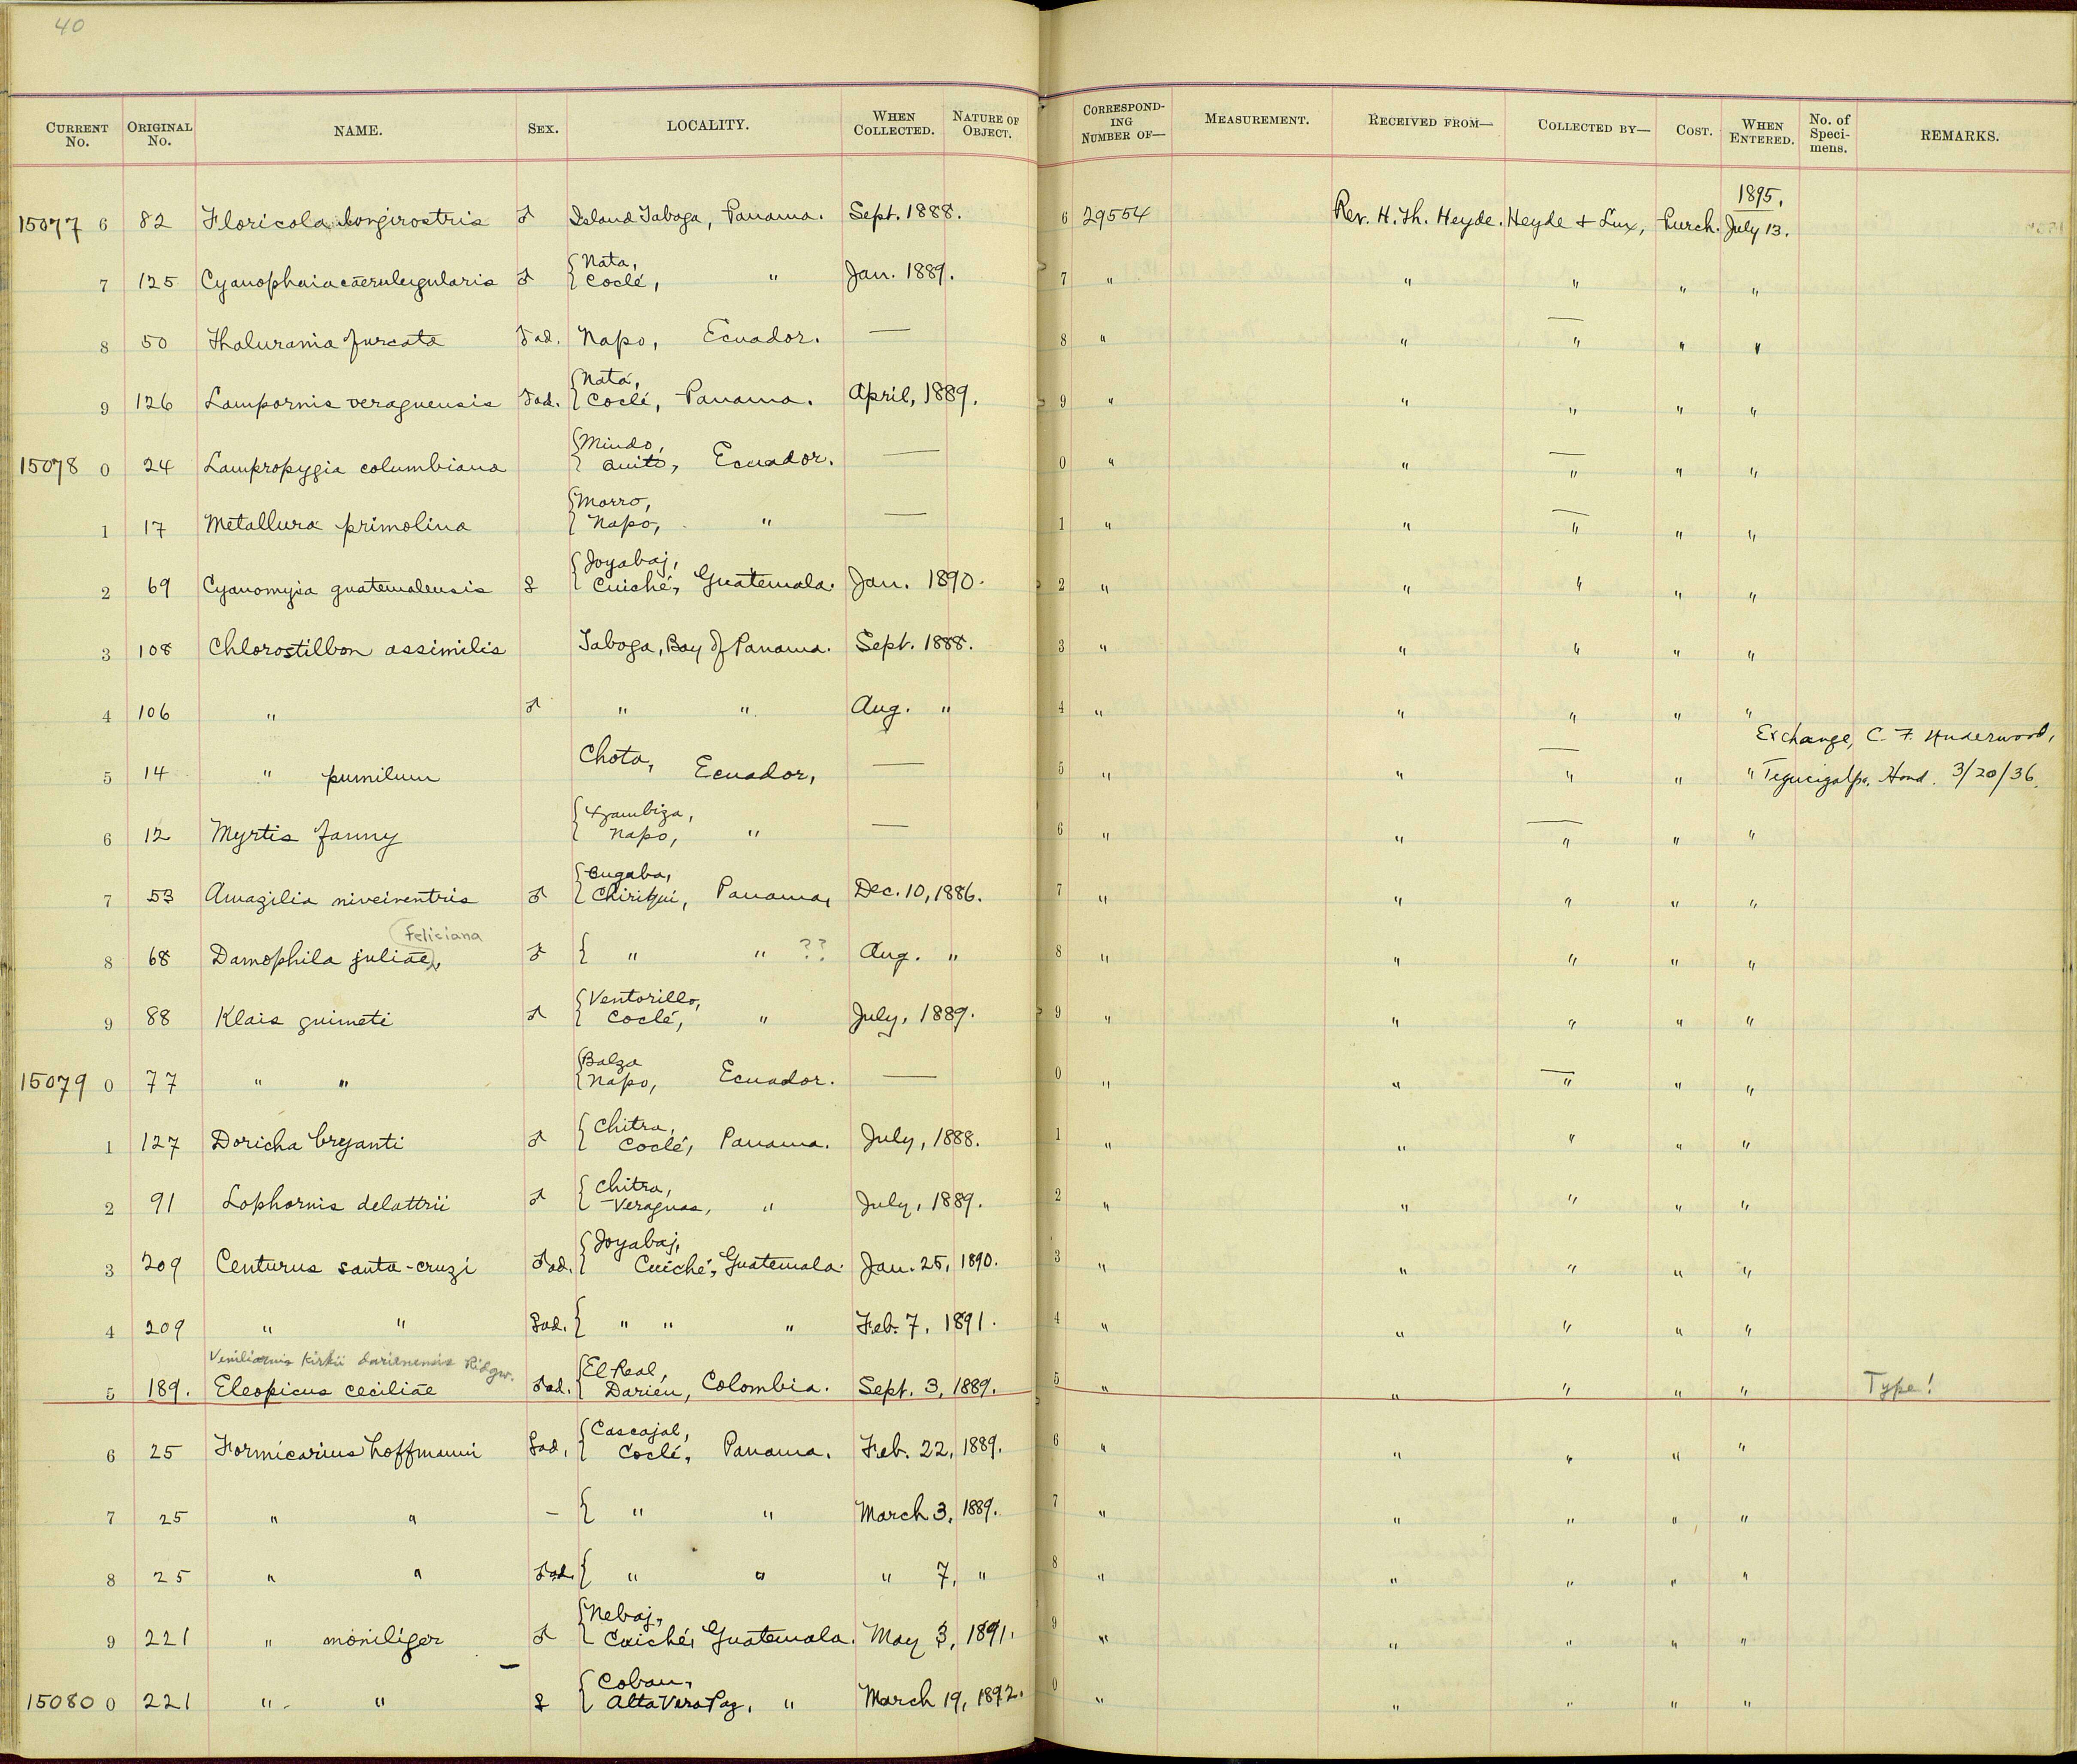 40
CURRENT No. ORIGINAL No. NAME. SEX. LOCALITY. WHEN COLLECTED. NATURE OF OBJECT. CORRESPONDING NUMBER OF— MEASUREMENT. RECEIVED FROM— COLLECTED BY— COST. WHEN ENTERED. No. of Specimens. REMARKS.
1895.
15077 6 82 Floricola longirostris ♂ Island Taboga, Panama. Sept. 1888. 6 29554 Rev. H. Th. Heyde. Heyde + Lux, Purch. July 13.
7 125 Cyanophaia cæruleigularis ♂ { Nata, Coclé, " Jan. 1889. 7 " " " " "
8 50 Thalurania furcata ♂ ad. Napo, Ecuador. — 8 " " — " " "
9 126 Lampornis veraguensis ♂ ad. { Nata, Coclé, Panama. April, 1889. 9 " " " " "
15078 0 24 Lampropygia columbiana { Mindo, Quito, Ecuador. — 0 " " — " " "
1 17 Metallura primolina { Morro, Napo, " — 1 " " — " " "
2 69 Cyanomyia guatemalensis ♀ { Joyabaj, Cuiché, Guatemala. Jan. 1890. 2 " " " " "
3 108 Chlorostilbon assimilis Taboga, Bay of Panama. Sept. 1888. 3 " " " " "
4 106 " ♂ " " Aug. " 4 " " " " "
Exchange, C. F. Underwood,
5 14 " pumilum Chota, Ecuador, — 5 " " — " " " Tegucigalpa, Hond. 3/20/36.
6 12 Myrtis fanny { Zambiza, Napo, " — 6 " " — " " "
7 53 Amazilia niveiventris ♂ { Bugaba, Chiriqui, Panama, Dec. 10, 1886. 7 " " " " "
Feliciana
8 68 Damophila juliæ, ♂ { " " ?? Aug. " 8 " " " " "
9 88 Klais guimeti ♂ { Ventorillo, Coclé, " July, 1889. 9 " " " " "
15079 0 77 " " { Balza Napo, Ecuador. — 0 " " — " " "
1 127 Doricha bryanti ♂ { Chitra, Coclé, Panama. July, 1888. 1 " " " " "
2 91 Lophornis delattrii ♂ { Chitra, Veraguas, " July, 1889. 2 " " " " "
3 209 Centurus santa-cruzi ♂ ad. { Joyabaj, Cuiché, Guatemala. Jan. 25, 1890. 3 " " " " "
4 209 " " ♀ ad. { " " " Feb. 7, 1891. 4 " " " " "
Veniliornis kirkii darienensis Ridgw.
5 189. Eleopicus ceciliæ ♂ ad. { El Real, Darien, Colombia. Sept. 3, 1889. 5 " " " " " Type!
6 25 Formicarius hoffmanni ♀ ad, { Cascajal, Coclé, Panama. Feb. 22, 1889. 6 " " " " "
7 25 " " – { " " March 3, 1889. 7 " " " " "
8 25 " " ♂ ad. { " " " 7, " 8 " " " " "
9 221 " moniliger ♂ { Nebaj, Cuiché, Guatemala. May 3, 1891. 9 " " " " "
15080 0 221 " " ♀ { Coban, Alta Vera Paz, " March 19, 1892. 0 " " " " "